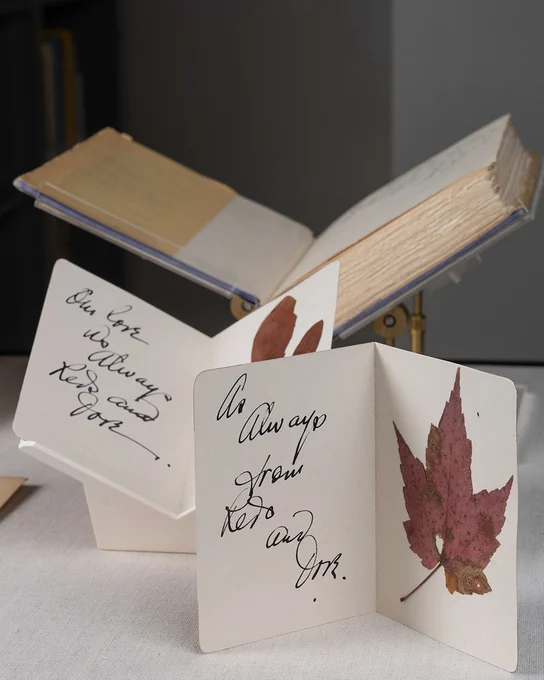 Our love
as Always
Redo and
Dork.
As
Always
from
Redo
and
Dork.